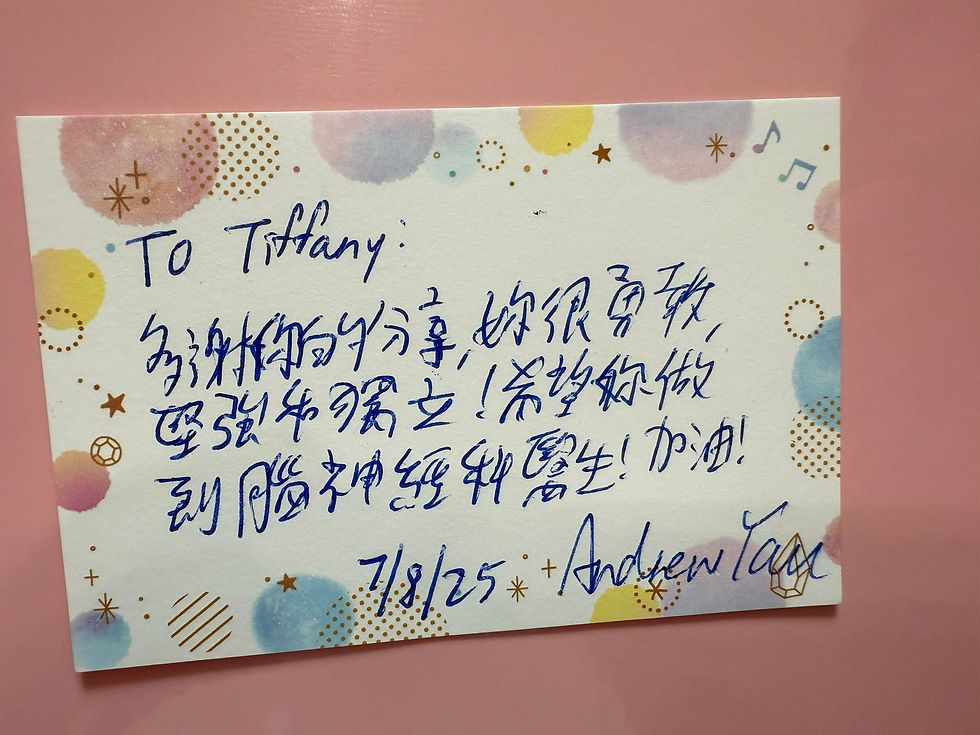 To Tiffany:
多謝你的分享,妳很勇敢,
堅強和獨立!希望妳做
到腦神經科醫生!加油!
7/8/25 Andrew Yau